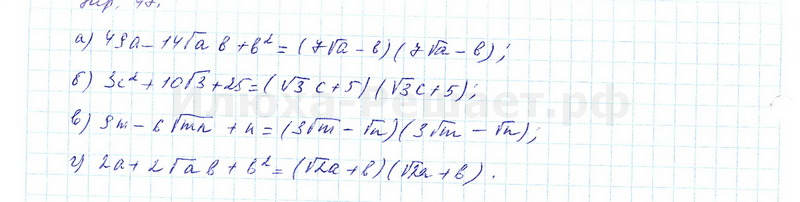 упр. 47.
а) 49a - 14√a b + b² = (7√a - b)(7√a - b);
б) 3c² + 10√3 + 25 = (√3 c + 5)(√3 c + 5);
в) 9m - 6√mn + n = (3√m - √n)(3√m - √n);
г) 2a + 2√a b + b² = (√2a + b)(√2a + b).
илюха-решает.рф